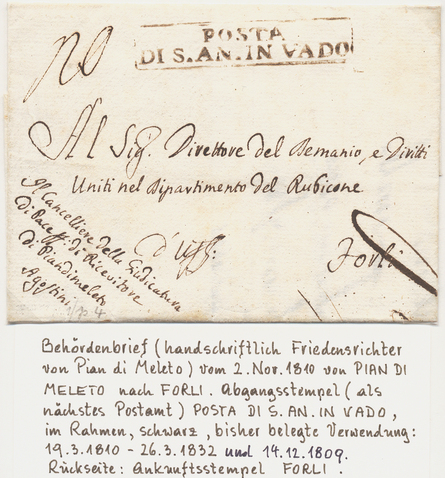 N.o
POSTA
DI S. AN. IN VADO
Al Sig.r Direttore del Demanio, e Diritti
Uniti nel Dipartimento del Rubicone
Il Cancelliere della Giudicatura
di Pace ff. di Ricevitore
di Piandimeleto
Agostini
d'Uff.
Forlì
Behördenbrief (handschriftlich Friedensrichter
von Pian di Meleto) vom 2. Nov. 1810 von PIAN DI
MELETO nach FORLI. Abgangsstempel (als
nächstes Postamt) POSTA DI S. AN. IN VADO,
im Rahmen, schwarz, bisher belegte Verwendung:
19.3.1810 - 26.3.1832 und 14.12.1809.
Rückseite: Ankunftsstempel FORLI.